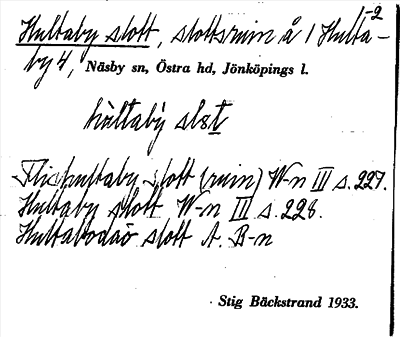 1-2
Hultaby slott, slottsruin å 1 Hulta-
by 4, Näsby sn, Östra hd, Jönköpings l.
hùltabỳ slst
Flishultaby slott (ruin) W-n III s. 227.
Hultaby slott W-n II s. 228.
slott A. B-n
Stig Bäckstrand 1933.